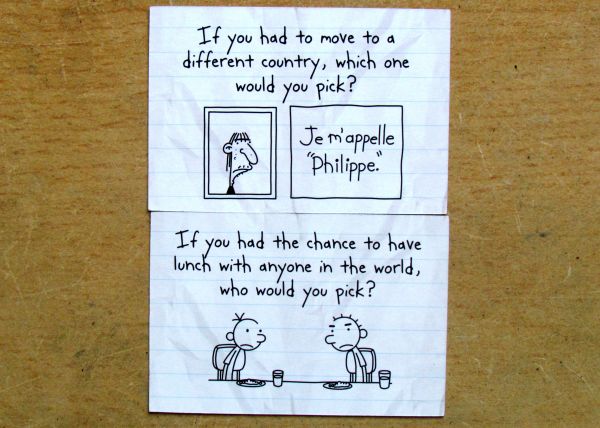 If you had to move to a
different country, which one
would you pick?
Je m'appelle
"Philippe."
If you had the chance to have
lunch with anyone in the world,
who would you pick?